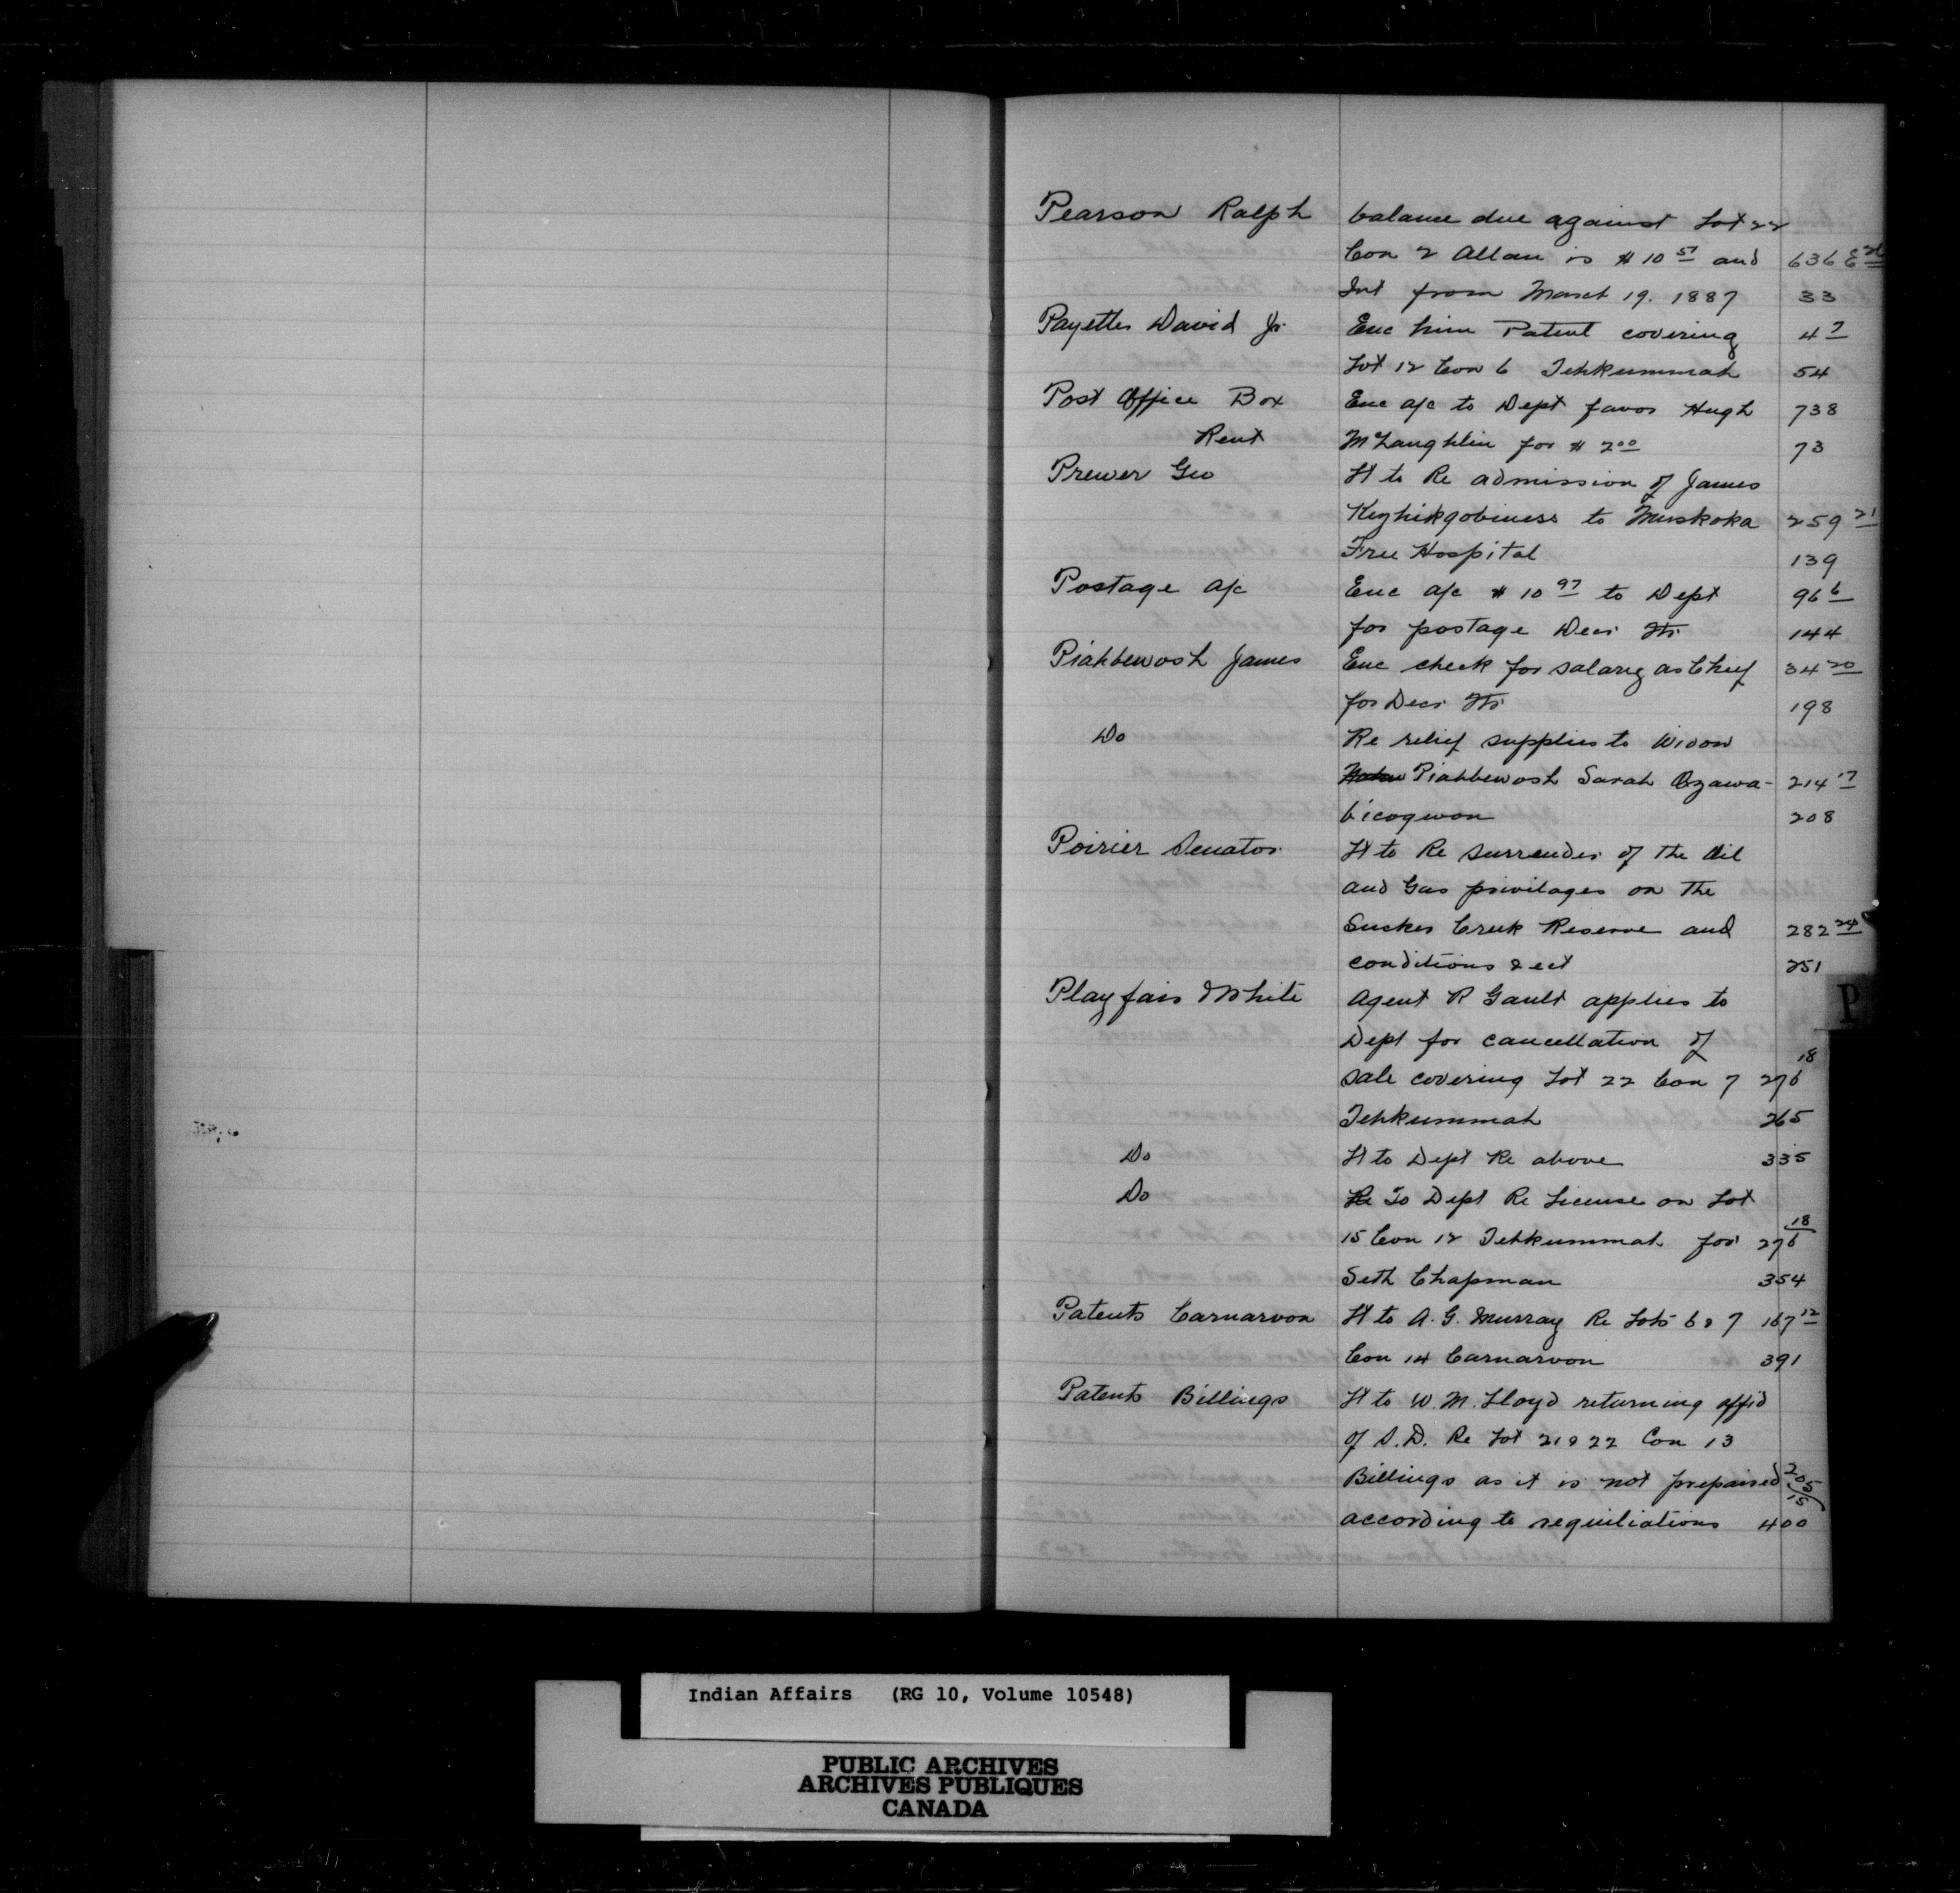 Pearson Ralph balance due against Lot 22
Con 2 Allan is $10 51 and 636 E
Int from March 19. 1887 33
Payette David Jr. Enc him Patent covering 4 7
Lot 12 Con 6 Tehkummah 54
Post Office Box Enc a/c to Dept favor Hugh 738
Rent McLaughlin for $2 00 73
Prewer Geo Lt to Re admission of James
Kezhikgobiness to Muskoka 259 21
Free Hospital 139
Postage a/c Enc a/c $10 97 to Dept 96 6
for postage Decr Qtr 144
Piahbewosh James Enc check for salary as Chief 34 20
for Decr Qtr 198
Do Re relief supplies to Widow
Piahbewosh Sarah Ozawa- 214 17
bicogwon 208
Poirier Senator Lt to Re surrender of the Oil
and Gas privilages on the
Sucker Creek Reserve and 282 24
conditions & ect 251
Playfair & White Agent R Gault applies to
Dept for cancellation of
sale covering Lot 22 Con 7 276 18
Tehkummah 265
Do Lt to Dept Re above 335
Do Re To Dept Re License on Lot
15 Con 12 Tehkummah for 276 18
Seth Chapman 354
Patents Carnarvon Lt to A. G. Murray Re Lots 6 & 7 167 12
Con 14 Carnarvon 391
Patents Billings Lt to W. M. Lloyd returning affid
of S. D. Re Lot 21 & 22 Con 13
Billings as it is not prepaired 205 15
according to requiliations 400
P
Indian Affairs (RG 10, Volume 10548)
PUBLIC ARCHIVES
ARCHIVES PUBLIQUES
CANADA